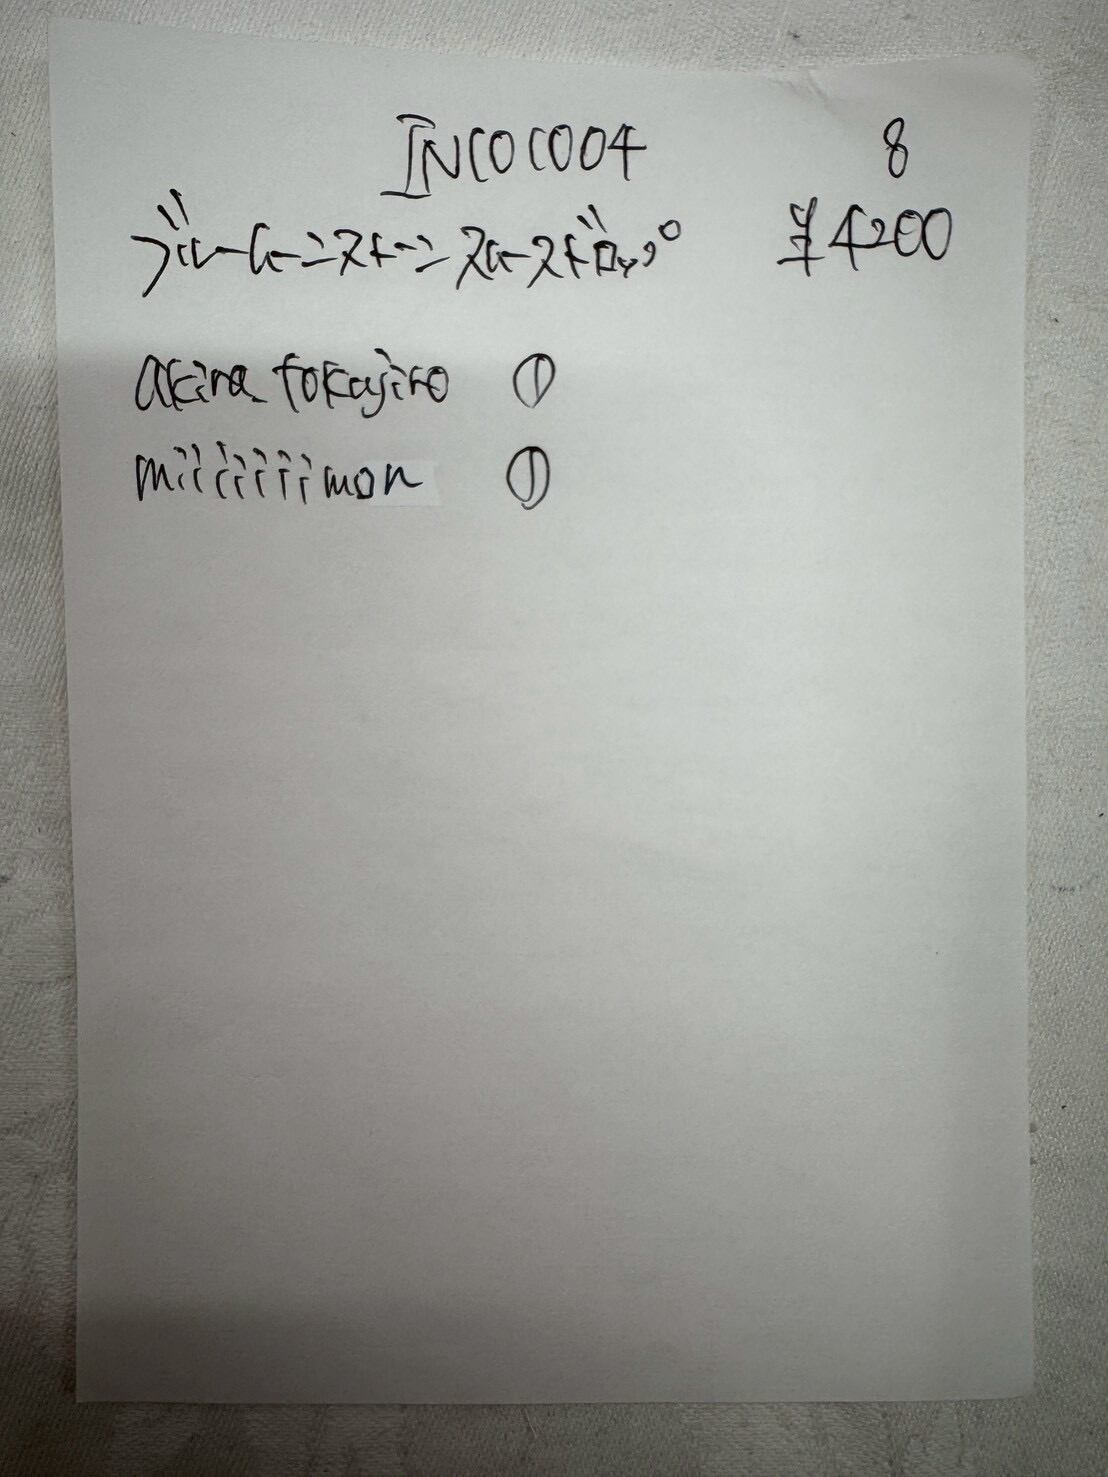 INCOC004 8
ブルームーンストーン スムースドロップ ¥4200
akira tokajiro ①
miiiiiiimon ①